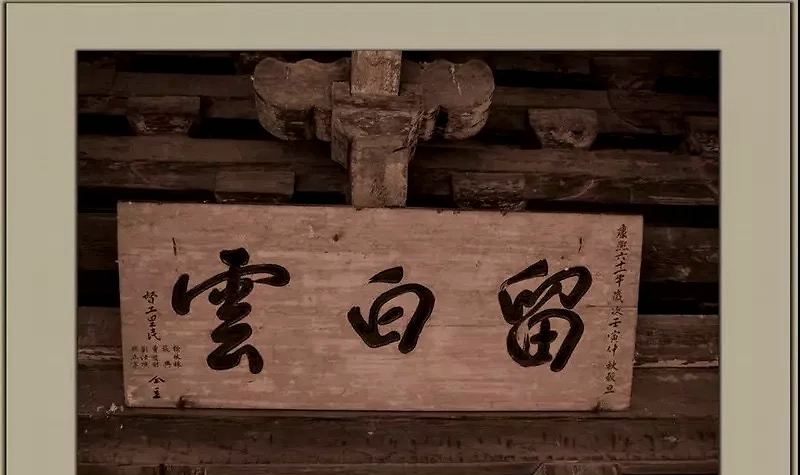 康熙六十一年歲次壬寅仲秋穀旦
留白雲
督工里民
仝立